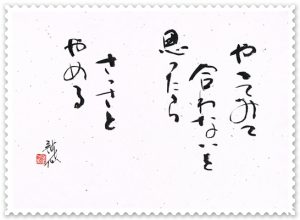 やってみて
合わないと
思ったら
さっさと
やめる